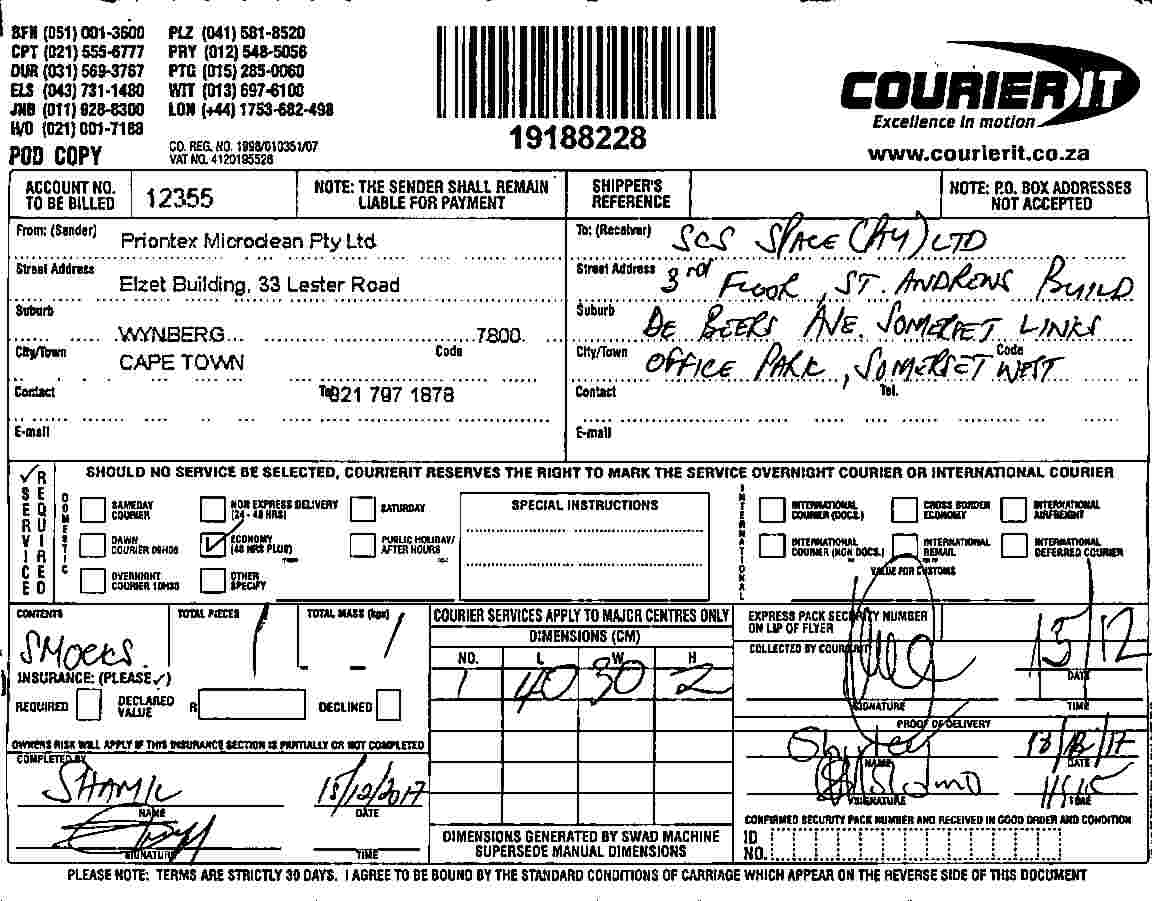 BFN (051) 001-3600 PLZ (041) 581-8520
CPT (021) 555-6777 PRY (012) 548-5056
DUR (031) 569-3767 PTG (015) 285-0060
ELS (043) 731-1480 WIT (013) 697-6100
JNB (011) 928-8300 LON (+44) 1753-682-498
H/O (021) 001-7168
POD COPY
CO. REG. NO. 1998/010351/07
VAT NO. 4120195526
19188228
COURIER IT
Excellence in motion
www.courierit.co.za
ACCOUNT NO. TO BE BILLED 12355
NOTE: THE SENDER SHALL REMAIN LIABLE FOR PAYMENT
SHIPPER'S REFERENCE
NOTE: P.O. BOX ADDRESSES NOT ACCEPTED
From: (Sender) Priontex Microclean Pty Ltd
Street Address Elzet Building, 33 Lester Road
Suburb WYNBERG 7800
City/Town CAPE TOWN Code
Contact Tel 021 797 1878
E-mail
To: (Receiver) SCS SPACE (PTY) LTD
Street Address 3rd FLOOR, ST. ANDREWS BUILD
Suburb DE BEERS AVE. SOMERSET LINKS
City/Town OFFICE PARK, SOMERSET WEST Code
Contact Tel.
E-mail
✓ SERVICE REQUIRED
SHOULD NO SERVICE BE SELECTED, COURIERIT RESERVES THE RIGHT TO MARK THE SERVICE OVERNIGHT COURIER OR INTERNATIONAL COURIER
DOMESTIC
SAMEDAY COURIER
NON EXPRESS DELIVERY (24 - 48 HRS)
SATURDAY
DAWN COURIER 09H00
✓ ECONOMY (48 HRS PLUS)
PUBLIC HOLIDAY/ AFTER HOURS
OVERNIGHT COURIER 10H30
OTHER SPECIFY
SPECIAL INSTRUCTIONS
INTERNATIONAL
INTERNATIONAL COURIER (DOCS.)
CROSS BORDER ECONOMY
INTERNATIONAL AIRFREIGHT
INTERNATIONAL COURIER (NON DOCS.)
INTERNATIONAL REMAIL
INTERNATIONAL DEFERRED COURIER
VALUE FOR CUSTOMS
CONTENTS SMOCKS.
TOTAL PIECES 1
TOTAL MASS (kgs) 1
INSURANCE: (PLEASE ✓)
REQUIRED DECLARED VALUE R DECLINED
OWNERS RISK WILL APPLY IF THIS INSURANCE SECTION IS PARTIALLY OR NOT COMPLETED
COMPLETED BY
SHAMIL 15/12/2017
NAME DATE
SIGNATURE TIME
COURIER SERVICES APPLY TO MAJOR CENTRES ONLY
DIMENSIONS (CM)
NO. L W H
1 40 30 2
DIMENSIONS GENERATED BY SWAD MACHINE SUPERSEDE MANUAL DIMENSIONS
EXPRESS PACK SECURITY NUMBER ON LIP OF FLYER
COLLECTED BY COURIERIT
15/12
DATE
SIGNATURE TIME
PROOF OF DELIVERY
18/12/17
NAME DATE
11:15
SIGNATURE TIME
CONFIRMED SECURITY PACK NUMBER AND RECEIVED IN GOOD ORDER AND CONDITION
ID NO.
PLEASE NOTE: TERMS ARE STRICTLY 30 DAYS. I AGREE TO BE BOUND BY THE STANDARD CONDITIONS OF CARRIAGE WHICH APPEAR ON THE REVERSE SIDE OF THIS DOCUMENT